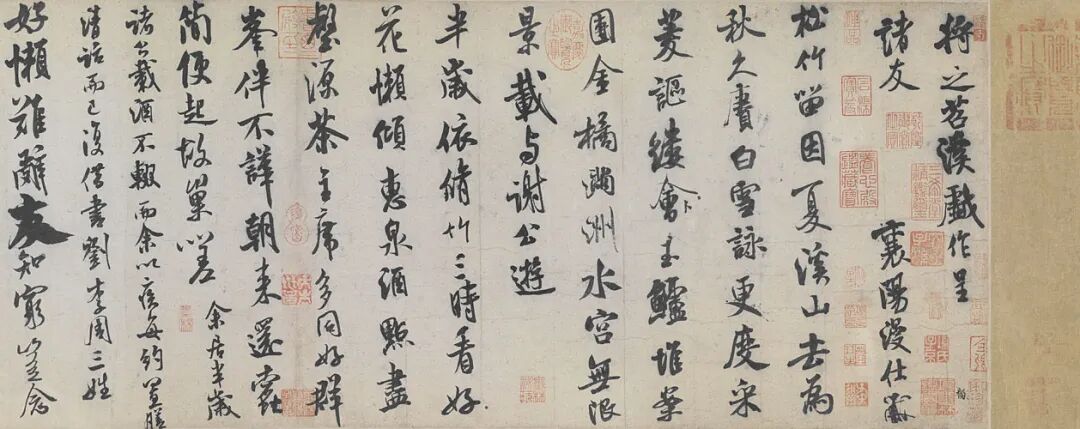 将之苕溪戲作呈
諸友 襄陽漫仕黻
松竹留因夏溪山去為
秋久賡白雪詠更度采
菱謳縷會玉鱸堆案
團金橘滿洲水宮無限
景載与謝公遊
半歲依脩竹三時看好
花懶傾惠泉酒點盡
壑源茶主席多同好群
峯伴不譁朝来還蠹
簡便起故巢嗟 余居半歲
諸公載酒不輟而余以疾每約置膳
清話而已復借書劉李周三姓
好懶難辭友知窮豈念